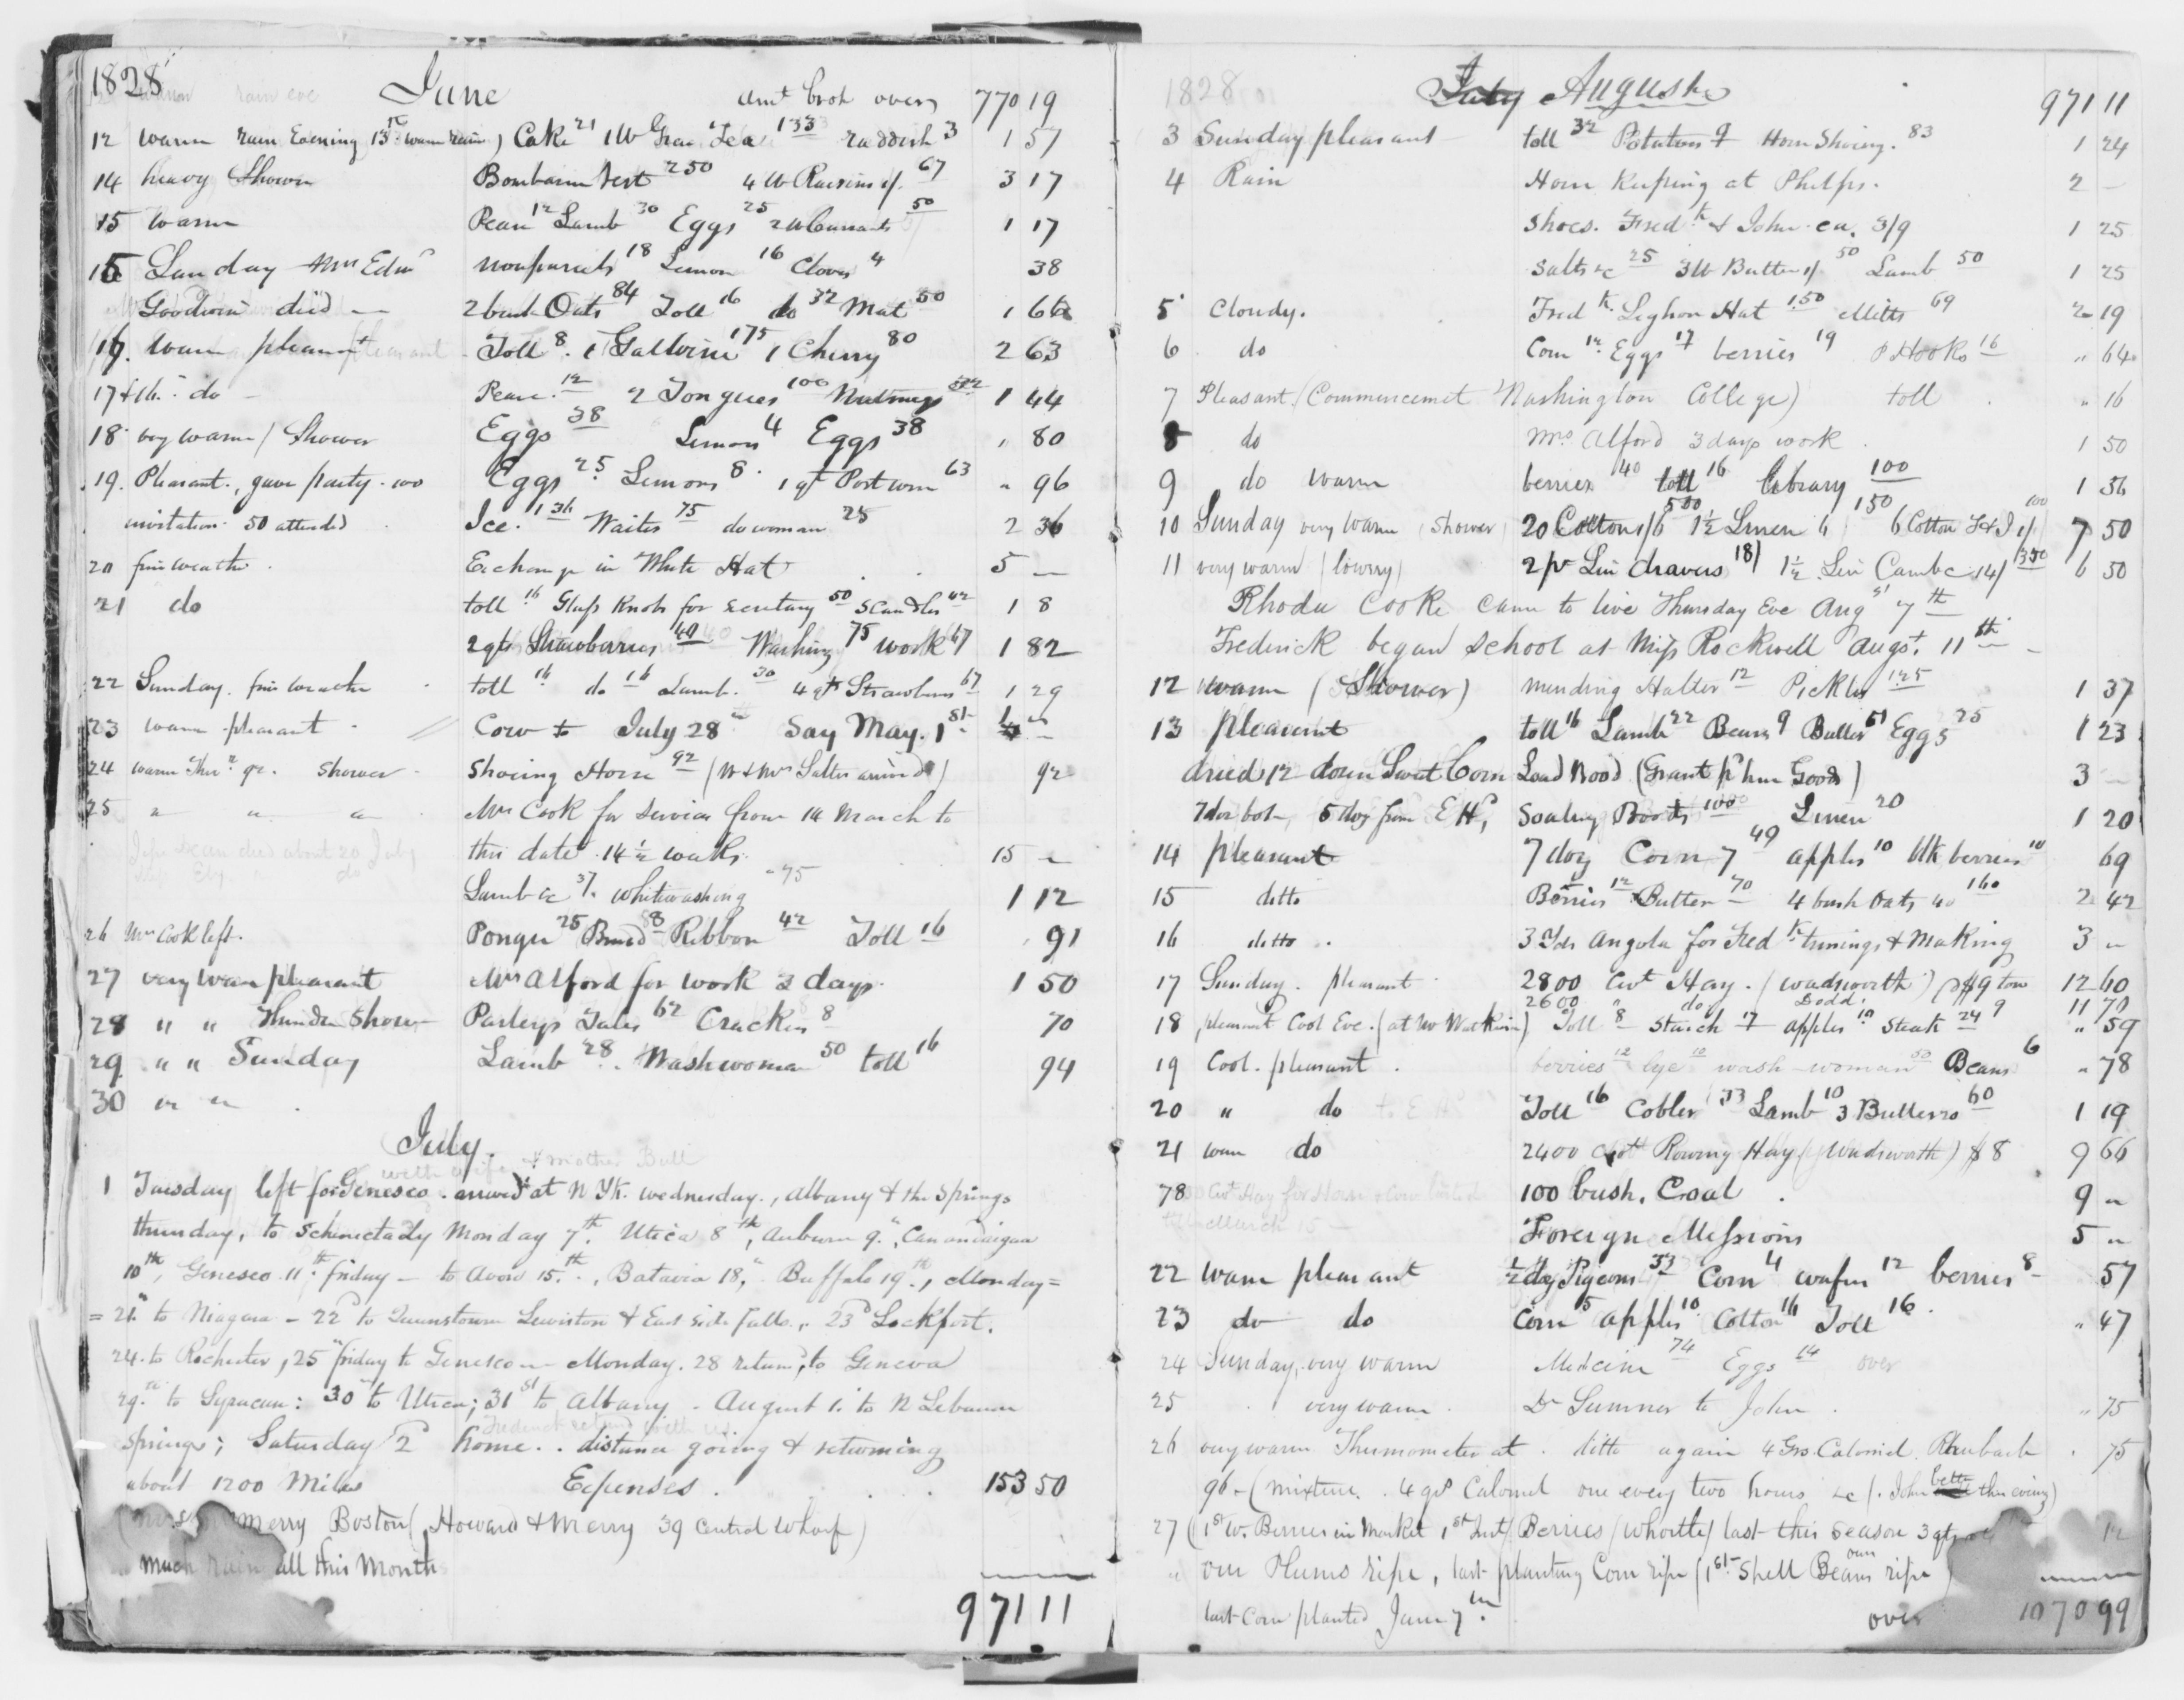 1828
June amt brot over 770 19
12 warm rain Evening 13 warm rain) Cake 21 1 lb Tea 133 raddish 3 1 57
14 heavy Shower Bombazin Vest 250 4 lb Raisins 1/. 67 3 17
15 warm Peas 12 Lamb 30 Eggs 25 2 lb Currants 50 1 17
15 Sunday Mrs Edwd nonpareils 18 Lemon 16 Cloves 4 38
Goodwin died — 2 bush Oats 84 Toll 16 do 32 Mat 50 1 66
16. warm pleasant Toll 8. 1 175 1 Cherry 80 2 63
17 do Peas. 12 2 Tongues 100 Nutmegs 32 1 44
18 very warm / Shower Eggs 38 Lemons 4 Eggs 38 " 80
19. Pleasant., gave party - 100 Eggs 25 Lemons 8. 1 qt Port wine 63 " 96
invitation. 50 attended Ice. 136 Waiter 75 do woman 25 2 36
20 fine weather. Exchange in White Hat 5 —
21 do toll 16 Glass Knobs for secretary 50 scandles 42 1 8
2 qts Strawberries 40 Washing 75 work 67 1 82
22 Sunday. fine weather toll 16 do 16 Lamb. 30 4 qts Strawberries 67 1 29
23 warm pleasant Cow to July 28 Say May. 1st
24 warm Ther. 92. Shower Shoeing Horse 92 (W & Mrs Salter arrived) 92
25 " " " Mrs Cook for services from 14 March to
this date. 14 1/2 weeks. 15 —
Lamb &c 37. whitewashing 75 1 12
26 Mrs Cook left. Pongee 25 Braid 8 Ribbon 42 Toll 16 91
27 very warm pleasant Mrs Alford for work 3 days. 1 50
28 " " Thunder Shower Parleys Tales 62 Crackers 8 70
29 " " Sunday Lamb 28. Washwoman 50 toll 16 94
30 " "
July.
with wife & mother Bull
1 Tuesday left for Genesco. arrived at N Yk. wednesday., Albany & the Springs
thursday, to Schenectady Monday 7th. Utica 8th, Auburn 9.", Canandaigua
10th, Genesco. 11th. friday — to Avon 15.th., Batavia 18," Buffalo 19.th, Monday =
= 21." to Niagara — 22d to Queenstown Lewiston & East side falls., 23d Lockport.
24. to Rochester, 25" friday to Genesco — Monday. 28 returnd, to Geneva
29.th to Syracuse: 30 to Utica; 31st to Albany — August 1. to N Lebanon
Frederick returnd with us
Springs; Saturday 2d home.. distance going & returning
about 1200 Miles Expenses. 153 50
Merry Boston (Howard & Merry 39 Central Wharf)
much rain all this Month
971 11
1828
July August 971 11
3 Sunday pleasant toll 32 Potatoes 9 Horse Shoeing. 83 1 24
4 Rain Horse Keeping at Phelps. 2 —
Shoes. Fredk & John. ea. 3/9 1 25
Salts &c 25 3 lb Butter 1/ 50 Lamb 50 1 25
5 Cloudy. Fredk. Leghon Hat 1.50 Mitts 69 2 19
6 do Corn 12 Eggs 17 berries 19 Hooks 16 " 64
7 Pleasant. (Commencemet Washington College) toll " 16
8 do Mrs Alford 3 days work 1 50
9 do warm berries 40 toll 16 library 100 1 56
10 Sunday very warm (Shower) 20 Cotton 1/6 500 1 1/2 Linen 6/ 150 6 Cotton F & J 1/ 100 7 50
11 very warm (lowry) 2 pr Lin drawers 18/ 1 1/2 Lin Cambc 14/ 350 6 50
Rhoda Cooke came to live Thursday Eve Augst 7th
Frederick began school at Miss Rockwell Augst. 11th —
12 warm (Shower) mending Halter 12 Pickles 125 1 37
13 pleasant toll 16 Lamb 22 Beans 9 Butter 51 Eggs 25 1 23
dried 12 dozen Sweet Corn Load Wood (Grant pr hm Goods) 3 —
7 doz bot, 5 doz from E H, Soaling Boots 100 Linen 20 1 20
14 pleasant 7 doz Corn 7 49 apples 10 blk berries 10 69
15 ditto Berries 12 Butter 70 4 bush Oats 40 160 2 42
16 ditto. 3 Yds Angola for Fredk trimings & Making 3 "
17 Sunday. pleasant 2800 Cwt Hay. (Wadsworth) $9 ton 12 60
2600 " do Dodd. 9 11 70
18 pleasant Cool Eve. (at Mr Watkins) Toll 8 Starch 17 apples 10 Steak 24 " 59
19 Cool. pleasant. berries 12 lye 10 wash-woman 50 Beans 6 " 78
20 " do Toll 16 Cobler 33 Lamb 10 3 Butter 20 60 1 19
21 warm do 2400 Cwt Rowing Hay (Wadsworth) $8 9 66
78 Cwt Hay for Horse & Cow 100 bush. Coal. 9 "
March 15 — Foreign Missions 5 "
22 Warm pleasant 1/2 doz Pigeons 33 Corn 4 wafers 12 berries 8 57
23 do do Corn 5 apples 10 Cotton 16 Toll 16. " 47
24 Sunday. very warm Medicine 74 Eggs 14 over
25 very warm. Dr Sumner to John. " 75
26 very warm Thermometer at. ditto again 4 Grs. Calomel Rhubarb. 75
96 — (mixture. 4 grs Calomel one every two hours &c (. John better this evening)
27 (1st W. Berries in Market 1st Inst / Berries (Whortle) last this Season 3 qts 12
our Plums ripe, last planting Corn ripe (1st Shell Beans own ripe)
last Corn planted June 7th. over 1070 99